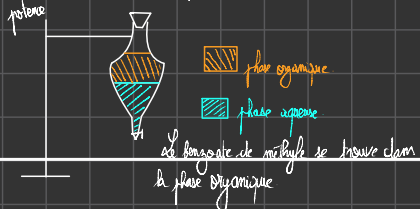 potence
phase organique
phase aqueuse
Le benzoate de méthyle se trouve dans
la phase organique